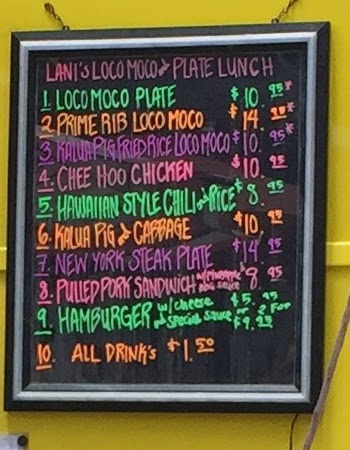 LANI'S LOCO MOCO & PLATE LUNCH
1. LOCO MOCO PLATE $10.95*
2. PRIME RIB LOCO MOCO $14.95*
3. KALUA PIG FRIED RICE LOCO MOCO $10.95*
4. CHEE HOO CHICKEN $10.95
5. HAWAIIAN STYLE CHILI & RICE $8.95
6. KALUA PIG & CABBAGE $10.95
7. NEW YORK STEAK PLATE $14.95
8. PULLED PORK SANDWICH w/ Pineapple BBQ sauce $8.95
9. HAMBURGER w/ cheese & special sauce $5.95 or 2 FOR $9.95
10. ALL DRINK'S $1.50